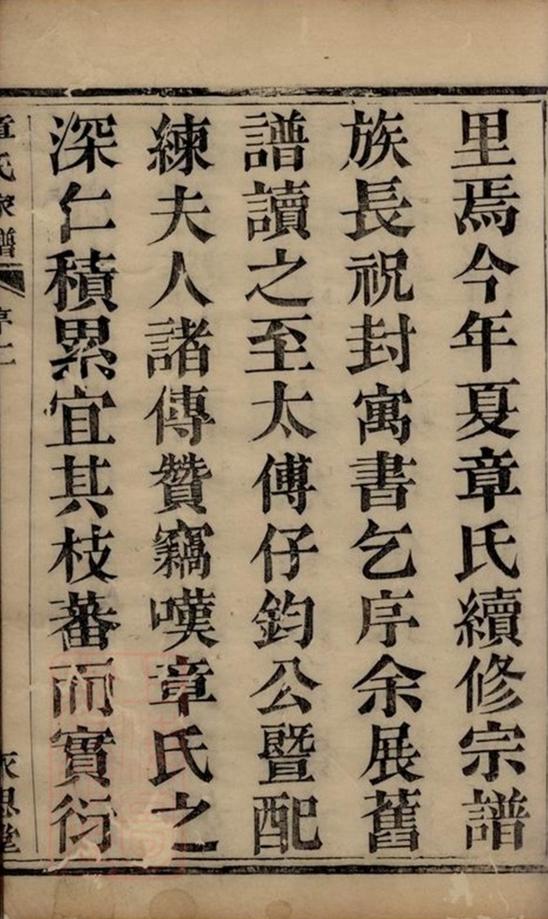 里焉今年夏章氏續修宗譜
族長祝封寓書乞序余展舊
譜讀之至太傅仔鈞公暨配
練夫人諸傳贊竊嘆章氏之
深仁積累宜其枝蕃而實衍
章氏家譜 序二
思堂